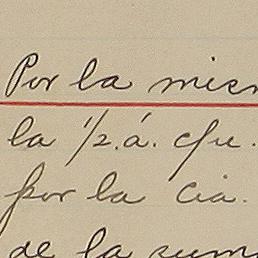 Por la mism
la 1/2.á. cfu.
por la cia.
de la suma